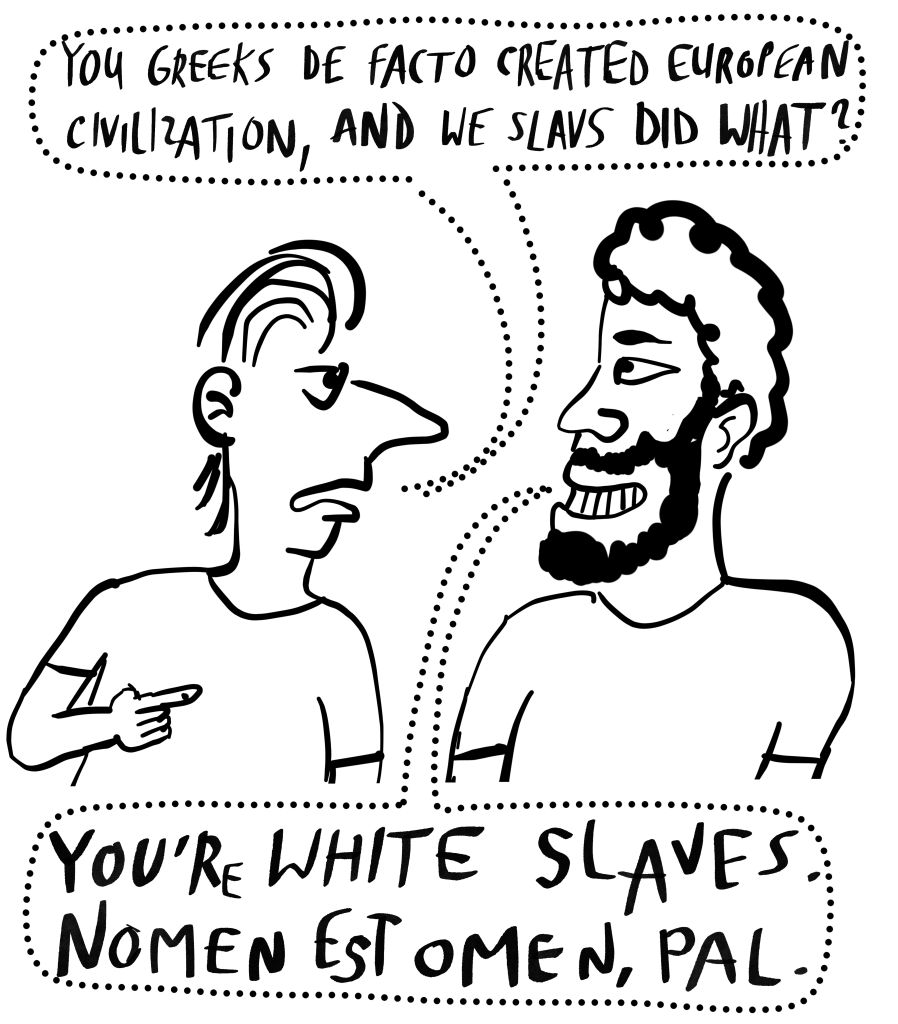 YOU GREEKS DE FACTO CREATED EUROPEAN
CIVILIZATION, AND WE SLAVS DID WHAT?
YOU'RE WHITE SLAVES.
NOMEN EST OMEN, PAL.